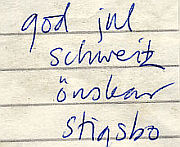 god jul
schweitz
önskar
stigsbo